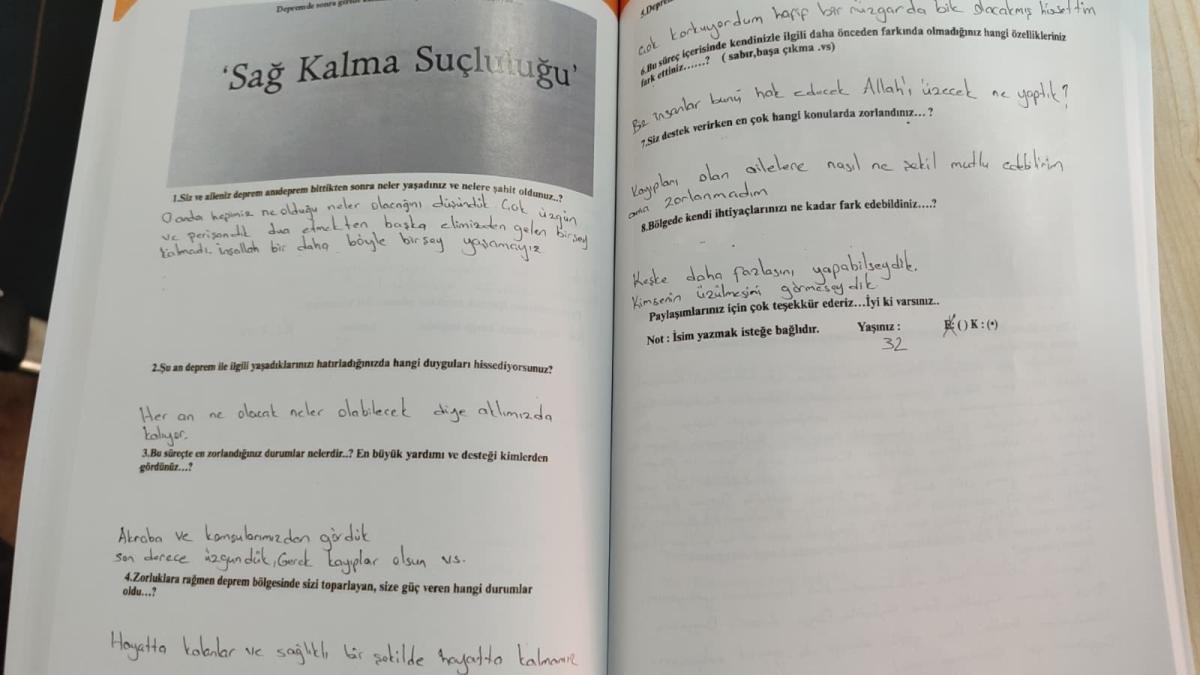 Depremde sonra
'Sağ Kalma Suçluluğu'
1.Siz ve aileniz deprem anıdeprem bittikten sonra neler yaşadınız ve nelere şahit oldunuz..?
O anda hepimiz ne olduğu neler olacağını düşündük Çok üzgün
ve perişandık dua etmekten başka elimizden gelen birşey
kalmadı. inşallah bir daha böyle birşey yaşamayız.
2.Şu an deprem ile ilgili yaşadıklarınızı hatırladığınızda hangi duyguları hissediyorsunuz?
Her an ne olacak neler olabilecek diye aklımızda
kalıyor.
3.Bu süreçte en zorlandığınız durumlar nelerdir..? En büyük yardımı ve desteği kimlerden
gördünüz...?
Akraba ve komşularımızdan gördük
son derece üzgündük, Gerek kayıplar olsun vs.
4.Zorluklara rağmen deprem bölgesinde sizi toparlayan, size güç veren hangi durumlar
oldu...?
Hayatta kalanlar ve sağlıklı bir şekilde hayatta kalmamız
5.Depre
Çok korkuyordum hafif bir rüzgarda bik olacakmış hissettim
6.Bu süreç içerisinde kendinizle ilgili daha önceden farkında olmadığınız hangi özellikleriniz
fark ettiniz......? ( sabır,başa çıkma .vs)
Biz insanlar bunu hak edecek Allah'ı üzecek ne yaptık?
7.Siz destek verirken en çok hangi konularda zorlandınız... ?
Kayıpları olan ailelere nasıl ne şekil mutlu edebilirim
ama zorlanmadım
8.Bölgede kendi ihtiyaçlarınızı ne kadar fark edebildiniz....?
Keşke daha fazlasını yapabilseydik.
Kimsenin üzülmesini görmeseydik
Paylaşımlarınız için çok teşekkür ederiz...İyi ki varsınız..
Not : İsim yazmak isteğe bağlıdır. Yaşınız : E: ( ) K : (•)
32